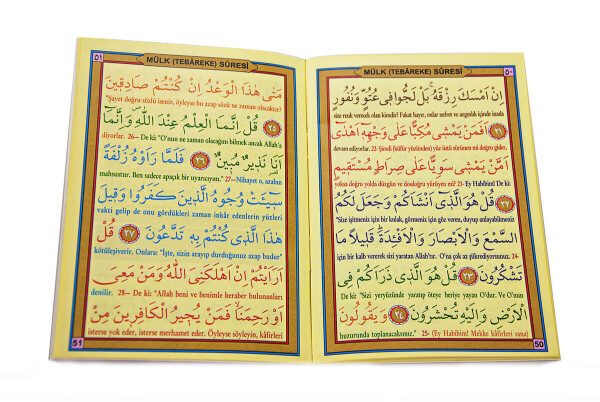 MÜLK (TEBÂREKE) SÛRESİ ٥٠
اِنْ اَمْسَكَ رِزْقَهُۚ بَلْ لَجُّوا فٖى عُتُوٍّ وَنُفُورٍ
size rızık verecek olan kimdir? Fakat hayır, onlar nefret ve azgınlık içinde inada
﴿٢١﴾ اَفَمَنْ يَمْشٖى مُكِبًّا عَلٰى وَجْهِهٖٓ اَهْدٰٓى
devam ediyorlar. 22- Şimdi (küfür yüzünden) yüz üstü sürünen mi doğru gider,
اَمَّنْ يَمْشٖى سَوِيًّا عَلٰى صِرَاطٍ مُسْتَقٖيمٍ
yoksa doğru yolda düzgün ve desdoğru yürüyen mi? 23- Ey Habibim! De ki:
﴿٢٢﴾ قُلْ هُوَ الَّذٖٓى اَنْشَاَكُمْ وَجَعَلَ لَكُمُ
"Size işitmeniz için bir kulak, görmeniz için göz veren, duyup anlayabilmeniz
السَّمْعَ وَالْاَبْصَارَ وَالْاَفْـِٔدَةَؕ قَلٖيلًا مَا
için bir kalb vererek sizi yaratan Allah'tır. O'na çok az şükrediyorsunuz. 24-
تَشْكُرُونَ ﴿٢٣﴾ قُلْ هُوَ الَّذٖى ذَرَاَكُمْ فِى
De ki: "Sizi yeryüzünde yaratıp öteye beriye yayan O'dur. Ve O'nun
الْاَرْضِ وَاِلَيْهِ تُحْشَرُونَ ﴿٢٤﴾ وَيَقُولُونَ
huzurunda toplanacaksınız." 25- (Ey Habibim! Mekke kâfirleri sana)
50
٥١ MÜLK (TEBÂREKE) SÛRESİ
مَتٰى هٰذَا الْوَعْدُ اِنْ كُنْتُمْ صَادِقٖينَ
"Şayet doğru sözlü iseniz, öyleyse bu azap sözü ne zaman olacaktır?"
﴿٢٥﴾ قُلْ اِنَّمَا الْعِلْمُ عِنْدَ اللّٰهِ وَاِنَّمَٓا
diyorlar. 26— De ki: "O'nun ne zaman olacağını bilmek ancak Allah'a
اَنَا۬ نَذٖيرٌ مُبٖينٌ ﴿٢٦﴾ فَلَمَّا رَاَوْهُ زُلْفَةً
mahsustur. Ben sadece apaçık bir uyarıcıyım." 27- Nihayet o, azabın
سٖٓيـَٔتْ وُجُوهُ الَّذٖينَ كَفَرُوا وَقٖيلَ
vakti gelip de onu gördükleri zaman inkâr edenlerin yüzleri
هٰذَا الَّذٖى كُنْتُمْ بِهٖ تَدَّعُونَ ﴿٢٧﴾ قُلْ
kötüleşiverir. Onlara: "İşte, sizin arayıp durduğunuz azap budur"
اَرَاَيْتُمْ اِنْ اَهْلَكَنِىَ اللّٰهُ وَمَنْ مَعِىَ
denilir. 28— De ki: "Allah beni ve benimle beraber bulunanları
اَوْ رَحِمَنَاۙ فَمَنْ يُجٖيرُ الْكَافِرٖينَ مِنْ
isterse yok eder, isterse merhamet eder. Öyleyse söyleyin, kâfirleri
51